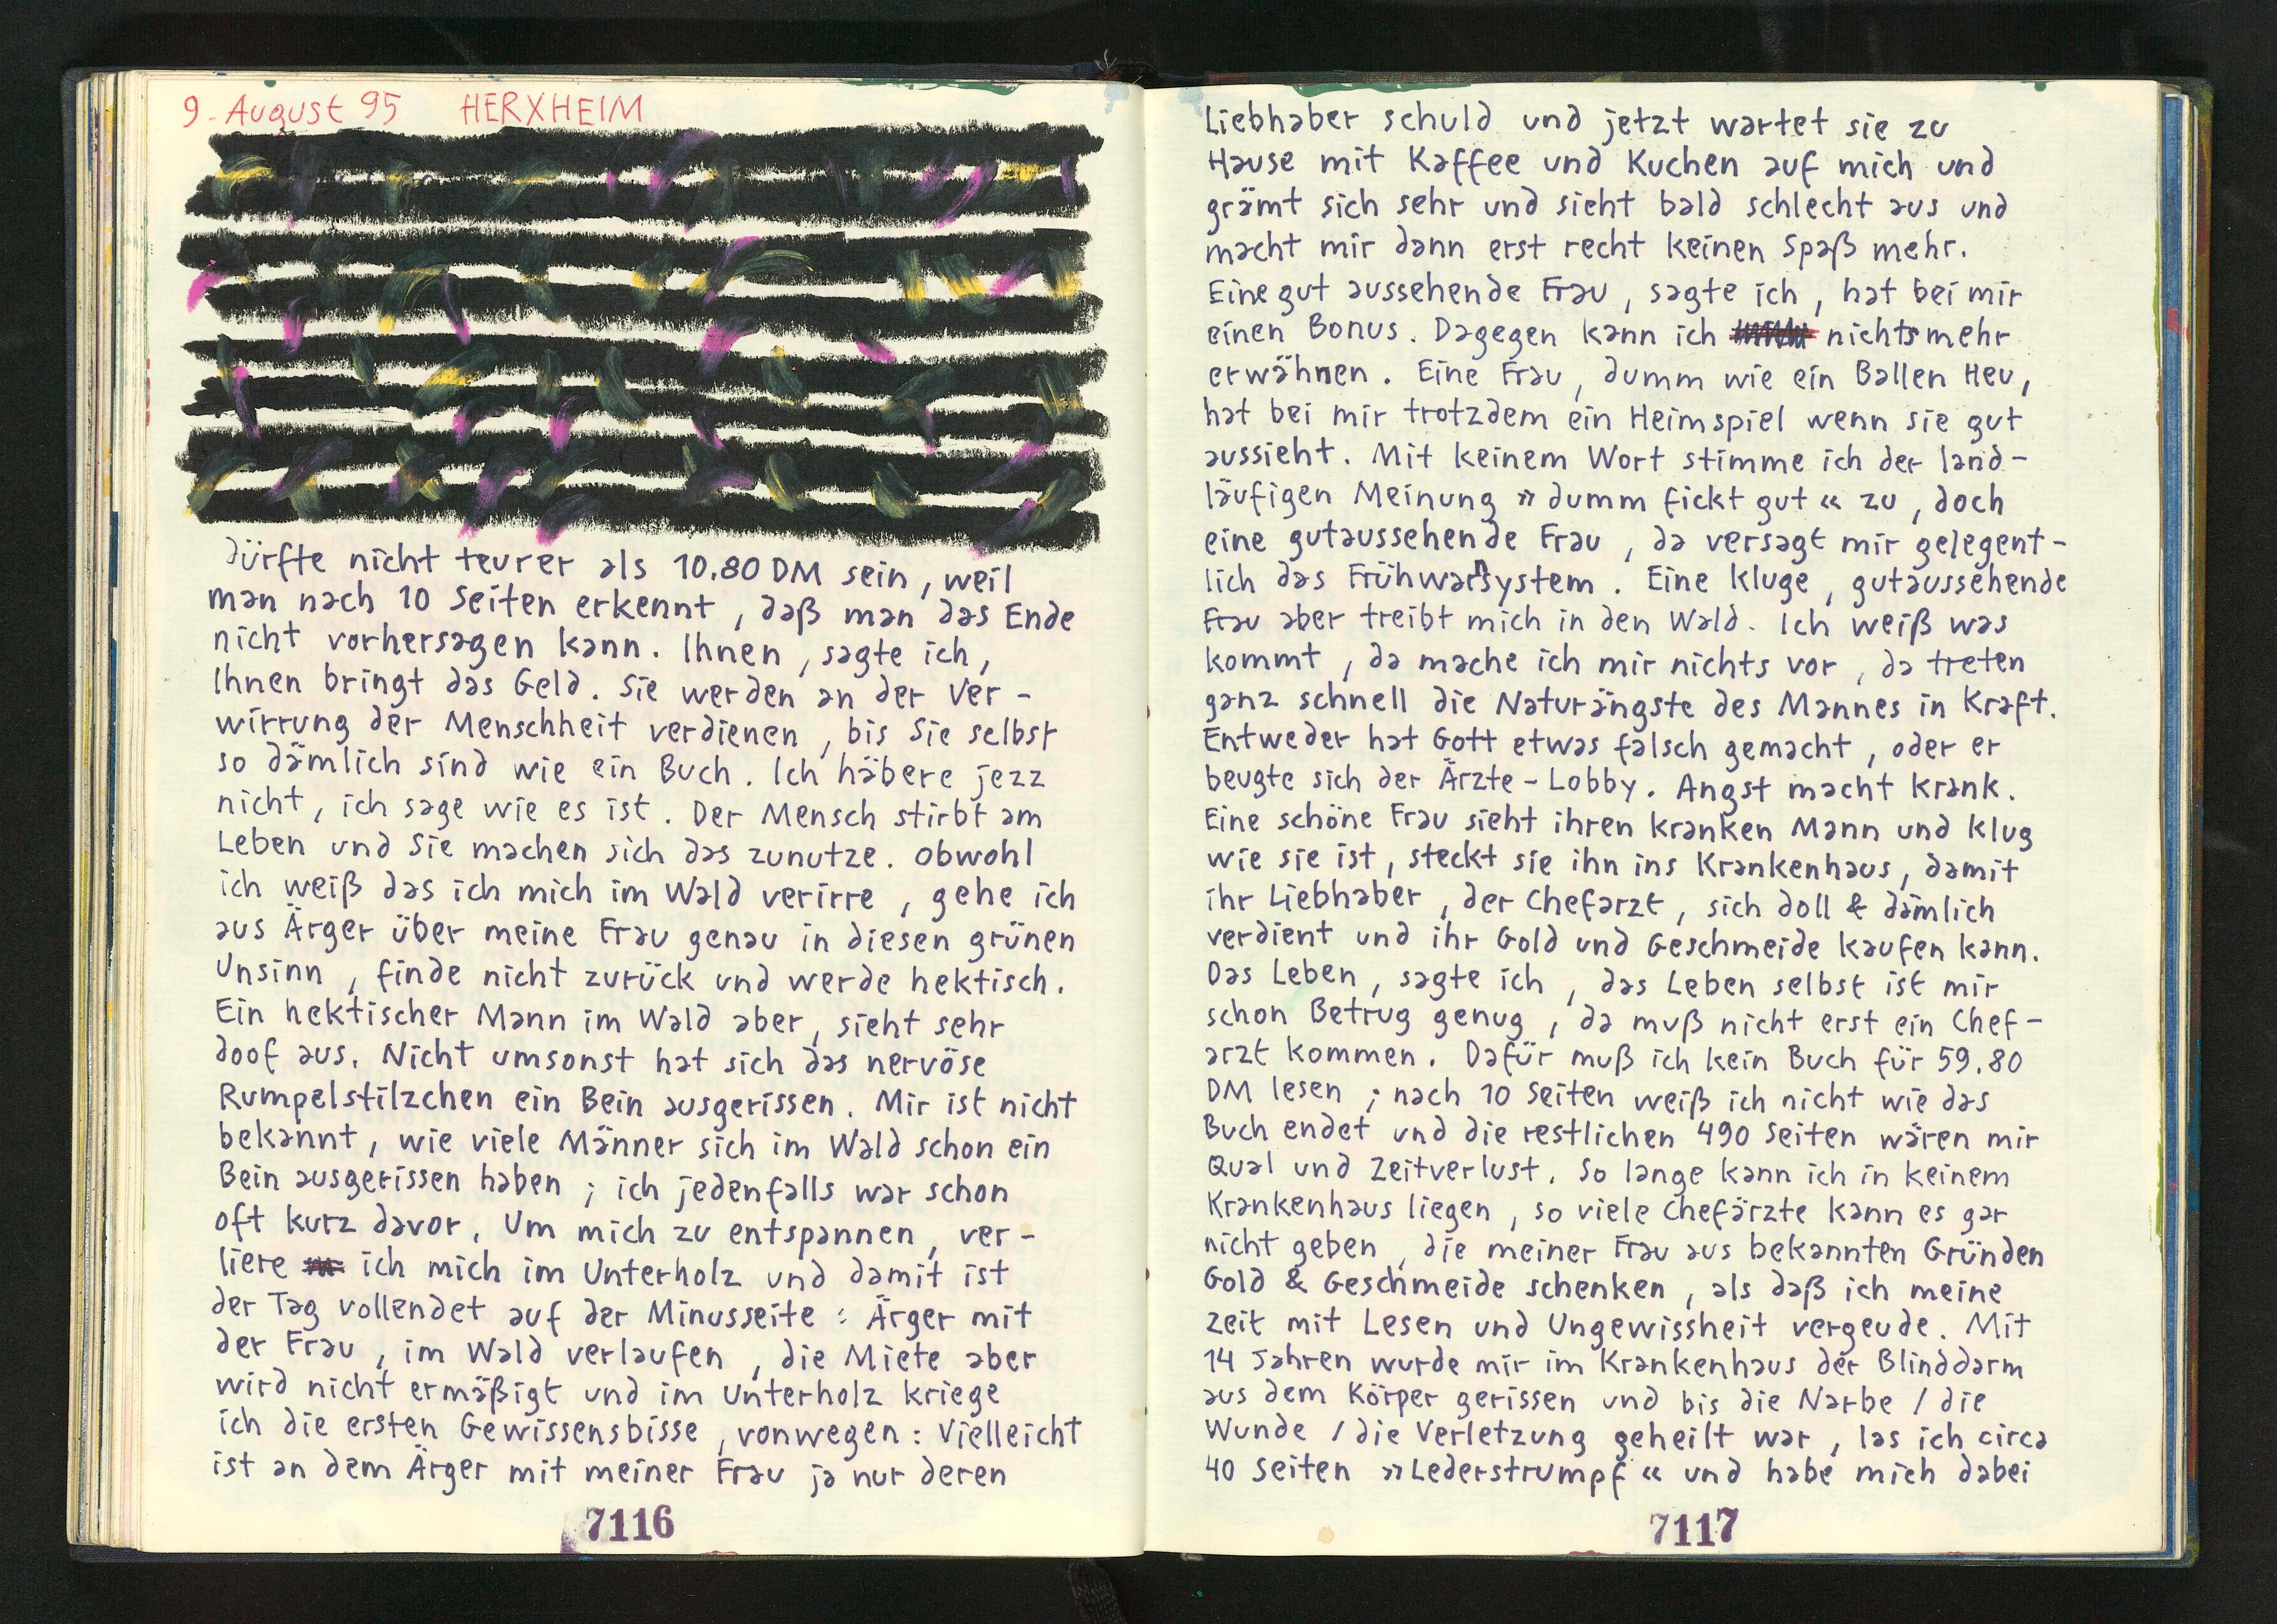 9. August 95 HERXHEIM
dürfte nicht teurer als 10.80 DM sein, weil
man nach 10 Seiten erkennt, daß man das Ende
nicht vorhersagen kann. Ihnen, sagte ich,
Ihnen bringt das Geld. Sie werden an der Ver-
wirrung der Menschheit verdienen, bis Sie selbst
so dämlich sind wie ein Buch. Ich häbere jezz
nicht, ich sage wie es ist. Der Mensch stirbt am
Leben und Sie machen sich das zunutze. Obwohl
ich weiß das ich mich im Wald verirre, gehe ich
aus Ärger über meine Frau genau in diesen grünen
Unsinn, finde nicht zurück und werde hektisch.
Ein hektischer Mann im Wald aber, sieht sehr
doof aus. Nicht umsonst hat sich das nervöse
Rumpelstilzchen ein Bein ausgerissen. Mir ist nicht
bekannt, wie viele Männer sich im Wald schon ein
Bein ausgerissen haben; ich jedenfalls war schon
oft kurz davor. Um mich zu entspannen, ver-
liere ich mich im Unterholz und damit ist
der Tag vollendet auf der Minusseite: Ärger mit
der Frau, im Wald verlaufen, die Miete aber
wird nicht ermäßigt und im Unterholz kriege
ich die ersten Gewissensbisse, vonwegen: Vielleicht
ist an dem Ärger mit meiner Frau ja nur deren
7116
Liebhaber schuld und jetzt wartet sie zu
Hause mit Kaffee und Kuchen auf mich und
grämt sich sehr und sieht bald schlecht aus und
macht mir dann erst recht keinen Spaß mehr.
Eine gut aussehende Frau, sagte ich, hat bei mir
einen Bonus. Dagegen kann ich nichts mehr
erwähnen. Eine Frau, dumm wie ein Ballen Heu,
hat bei mir trotzdem ein Heimspiel wenn sie gut
aussieht. Mit keinem Wort stimme ich der land-
läufigen Meinung »dumm fickt gut« zu, doch
eine gutaussehende Frau, da versagt mir gelegent-
lich das Frühwarnsystem. Eine kluge, gutaussehende
Frau aber treibt mich in den Wald. Ich weiß was
kommt, da mache ich mir nichts vor, da treten
ganz schnell die Naturängste des Mannes in Kraft.
Entweder hat Gott etwas falsch gemacht, oder er
beugte sich der Ärzte-Lobby. Angst macht krank.
Eine schöne Frau sieht ihren kranken Mann und klug
wie sie ist, steckt sie ihn ins Krankenhaus, damit
ihr Liebhaber, der Chefarzt, sich doll & dämlich
verdient und ihr Gold und Geschmeide kaufen kann.
Das Leben, sagte ich, das Leben selbst ist mir
schon Betrug genug, da muß nicht erst ein Chef-
arzt kommen. Dafür muß ich kein Buch für 59.80
DM lesen; nach 10 Seiten weiß ich nicht wie das
Buch endet und die restlichen 490 Seiten wären mir
Qual und Zeitverlust. So lange kann ich in keinem
Krankenhaus liegen, so viele Chefärzte kann es gar
nicht geben, die meiner Frau aus bekannten Gründen
Gold & Geschmeide schenken, als daß ich meine
Zeit mit Lesen und Ungewissheit vergeude. Mit
14 Jahren wurde mir im Krankenhaus der Blinddarm
aus dem Körper gerissen und bis die Narbe / die
Wunde / die Verletzung geheilt war, las ich circa
40 Seiten »Lederstrumpf« und habe mich dabei
7117